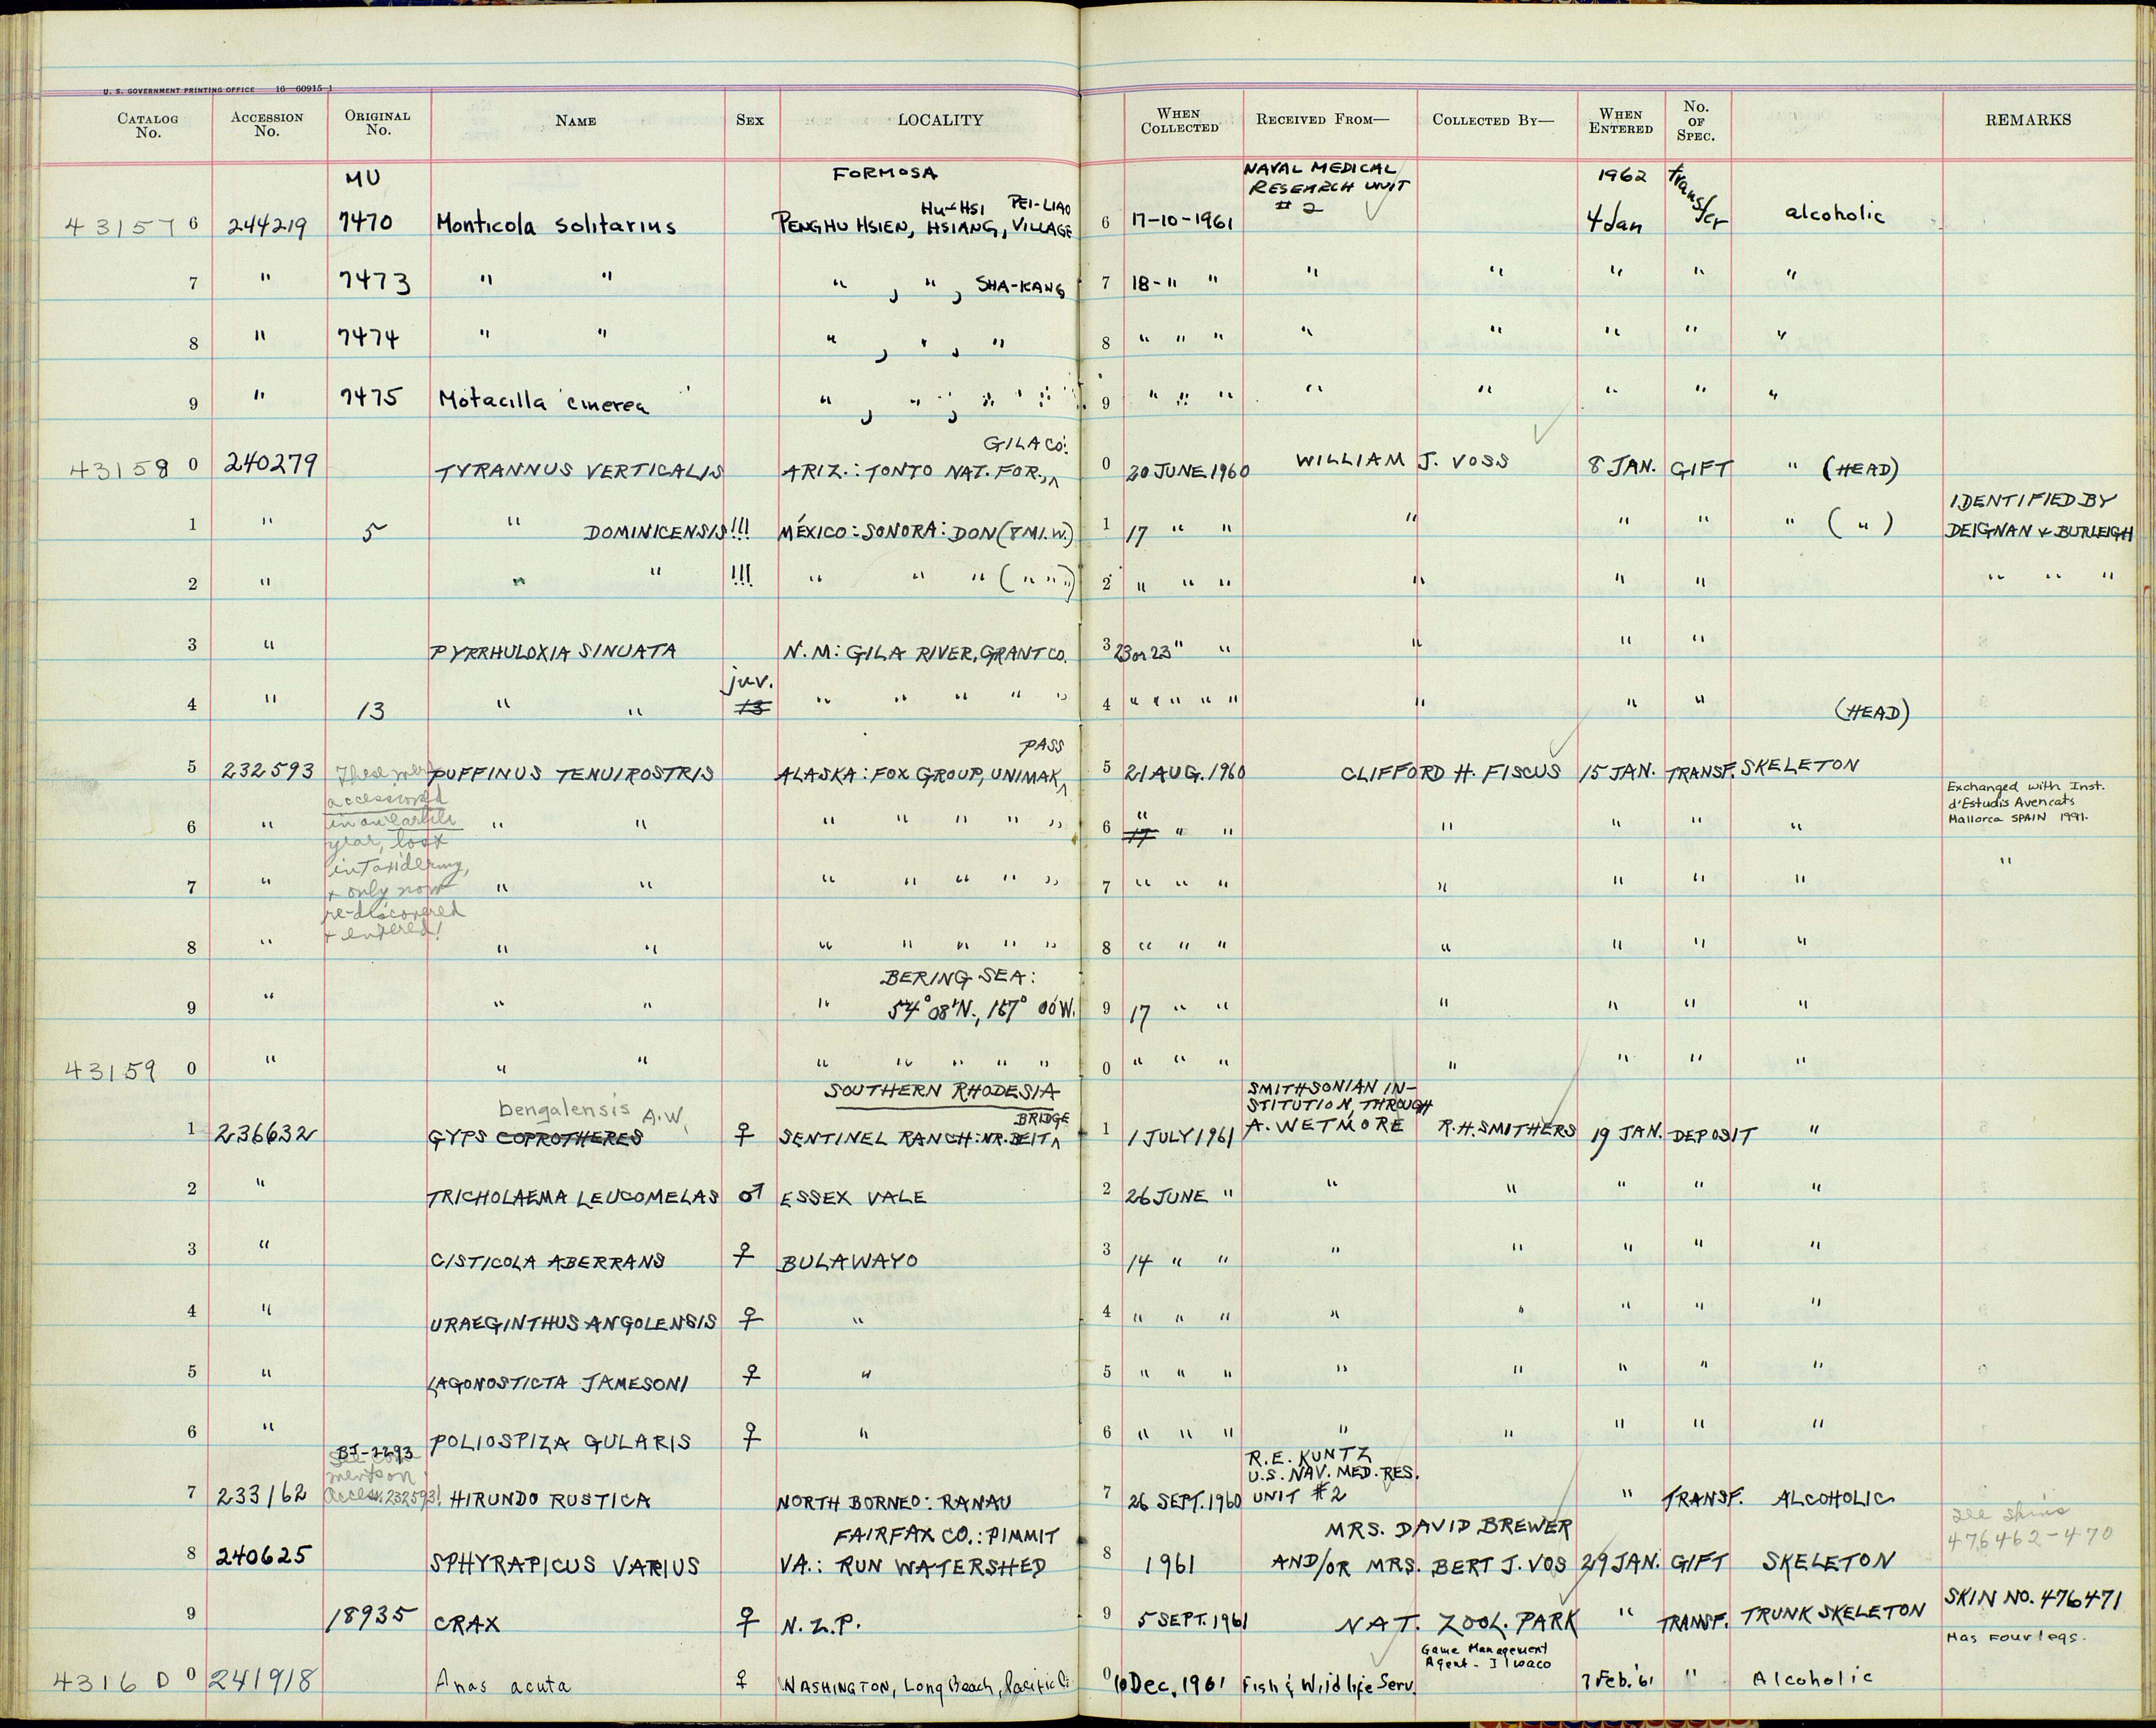 U. S. GOVERNMENT PRINTING OFFICE 16—60915-1
CATALOG No. ACCESSION No. ORIGINAL No. NAME SEX LOCALITY WHEN COLLECTED RECEIVED FROM— COLLECTED BY— WHEN ENTERED No. OF SPEC. REMARKS
MU FORMOSA NAVAL MEDICAL RESEARCH UNIT #2 1962 transfer
HU-HSI PEI-LIAO
43157 6 244219 7470 Monticola solitarius PENGHU HSIEN, HSIANG, VILLAGE 6 17-10-1961 4 Jan alcoholic
7 " 7473 " " " , " , SHA-KANG 7 18- " " " " " " "
8 " 7474 " " " , " , " 8 " " " " " " " "
9 " 7475 Motacilla cinerea " , " , " " 9 " " " " " " " "
GILA CO.
43158 0 240279 TYRANNUS VERTICALIS ARIZ.: TONTO NAT. FOR., 0 20 JUNE 1960 WILLIAM J. VOSS 8 JAN. GIFT " (HEAD)
1 " 5 " DOMINICENSIS !!! MÉXICO: SONORA: DON (8 MI. W.) 1 17 " " " " " " ( " ) IDENTIFIED BY DEIGNAN & BURLEIGH
2 " " " !!! " " " ( " " " ) 2 " " " " " " " " "
3 " PYRRHULOXIA SINUATA N. M: GILA RIVER, GRANT CO. 3 23 or 23 " " " " "
juv.
4 " 13 " " 13 " " " " " 4 " " " " " " " " (HEAD)
PASS
5 232593 PUFFINUS TENUIROSTRIS ALASKA: FOX GROUP, UNIMAK 5 21 AUG. 1960 CLIFFORD H. FISCUS 15 JAN. TRANSF. SKELETON
These were
accessioned
in an earlier
year, lost
in Taxidermy,
& only now
re-discovered
& entered!
6 " " " " " " " " 6 " 17 " " " " " " Exchanged with Inst. d'Estudis Avencats Mallorca SPAIN 1991.
7 " " " " " " " " 7 " " " " " " " "
8 " " " " " " " " 8 " " " " " " "
BERING SEA:
9 " " " " 54° 08'N., 167° 00'W. 9 17 " " " " " "
43159 0 " " " " " " " " 0 " " " " " " "
SOUTHERN RHODESIA SMITHSONIAN INSTITUTION, THROUGH
bengalensis A.W. BRIDGE
1 236632 GYPS COPROTHERES ♀ SENTINEL RANCH: NR. BEIT 1 1 JULY 1961 A. WETMORE R.H. SMITHERS 19 JAN. DEPOSIT "
2 " TRICHOLAEMA LEUCOMELAS ♂ ESSEX VALE 2 26 JUNE " " " " " "
3 " CISTICOLA ABERRANS ♀ BULAWAYO 3 14 " " " " " " "
4 " URAEGINTHUS ANGOLENSIS ♀ " 4 " " " " " " " "
5 " LAGONOSTICTA JAMESONI ♀ " 5 " " " " " " " "
6 " POLIOSPIZA GULARIS ♀ " 6 " " " " " " " "
BI-2293 R. E. KUNTZ
See comments on Access. 232593! U.S. NAV. MED. RES.
7 233162 HIRUNDO RUSTICA NORTH BORNEO: RANAU 7 26 SEPT. 1960 UNIT #2 " TRANSF. ALCOHOLIC
FAIRFAX CO.: PIMMIT MRS. DAVID BREWER see skins 476462-470
8 240625 SPHYRAPICUS VARIUS VA.: RUN WATERSHED 8 1961 AND/OR MRS. BERT J. VOS 29 JAN. GIFT SKELETON
9 18935 CRAX ♀ N.Z.P. 9 5 SEPT. 1961 NAT. ZOOL. PARK " TRANSF. TRUNK SKELETON SKIN NO. 476471
Game Management Agent - Ilwaco Has Four legs.
4316 0 0 241918 Anas acuta ♀ WASHINGTON, Long Beach, Pacific 0 Dec. 1961 Fish & Wildlife Serv. 7 Feb. '61 " Alcoholic